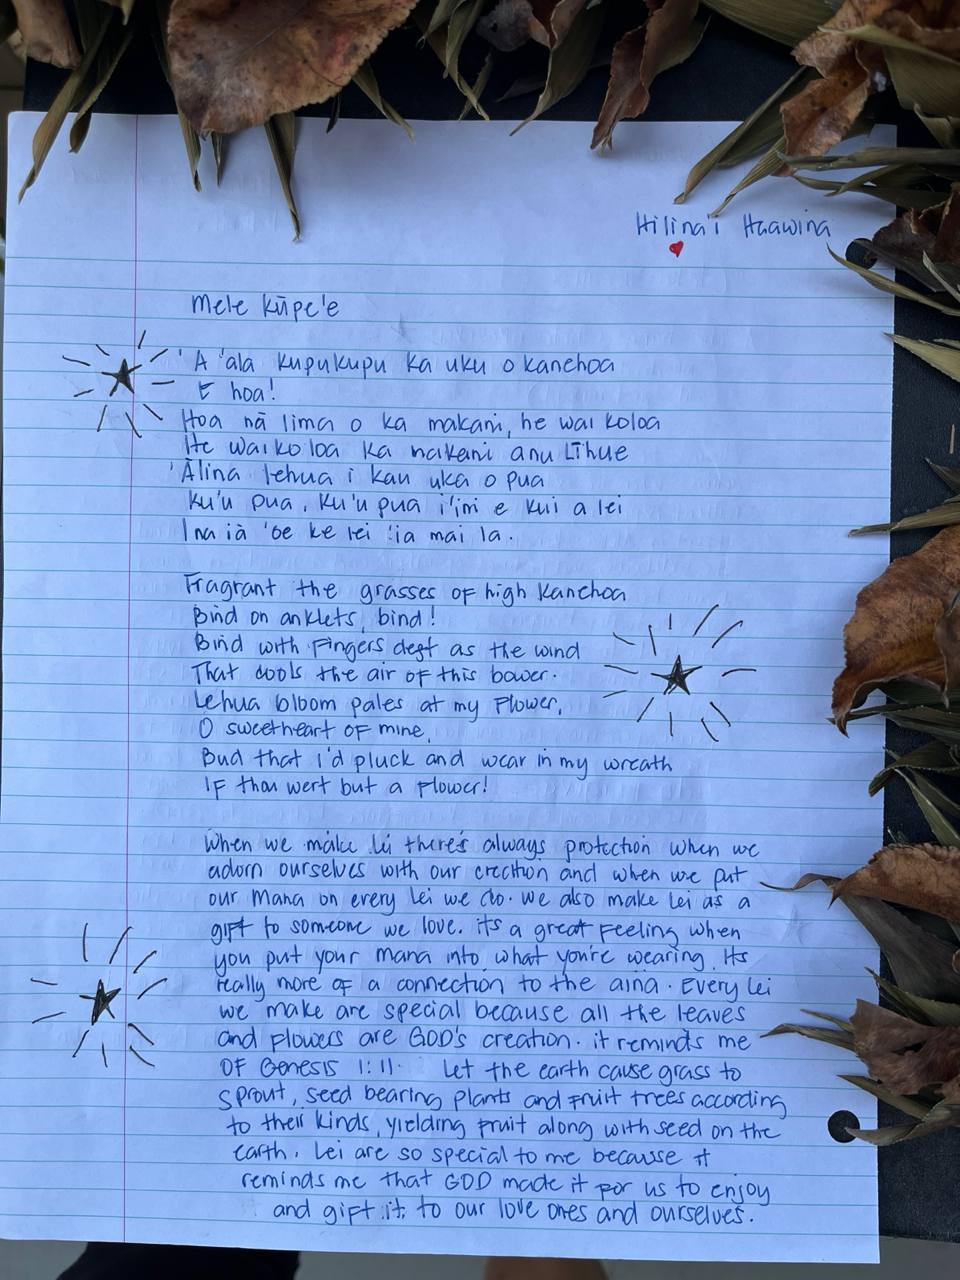 Hilina'i Haawina
Mele kūpe'e
'A 'ala kupukupu ka uku o kanehoa
E hoa!
Hoa nā lima o ka makani, he wai koloa
He waikoloa ka makani anu Līhue
'Ālina lehua i kau uka o pua
Ku'u pua, Ku'u pua i'ini e kui a lei
Ina iā 'oe ke lei 'ia mai la.
Fragrant the grasses of high Kanehoa
Bind on anklets, bind!
Bind with Fingers deft as the wind
That cools the air of this bower.
Lehua bloom pales at my Flower,
O sweetheart of mine,
Bud that i'd pluck and wear in my wreath
If thou wert but a Flower!
When we make lei there's always protection when we
adorn ourselves with our creation and when we put
our Mana on every Lei we do. we also make Lei as a
gift to someone we love. its a great Feeling when
you put your mana into what you're wearing. Its
really more of a connection to the aina. Every Lei
we make are special because all the leaves
and flowers are GOD's creation. it reminds me
OF Genesis 1:11. Let the earth cause grass to
sprout, seed bearing plants and fruit trees according
to their kinds, yielding fruit along with seed on the
earth. Lei are so special to me because it
reminds me that GOD made it for us to enjoy
and gift it to our love ones and ourselves.